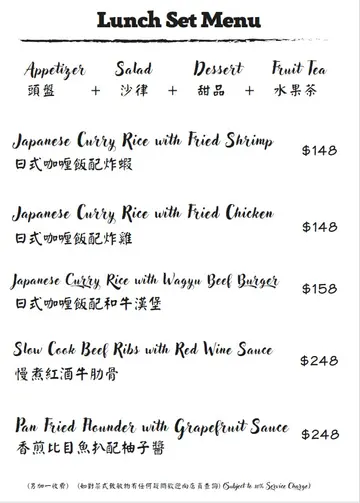 Lunch Set Menu
Appetizer Salad Dessert Fruit Tea
頭盤 + 沙律 + 甜品 + 水果茶
Japanese Curry Rice with Fried Shrimp
日式咖喱飯配炸蝦 $148
Japanese Curry Rice with Fried Chicken
日式咖喱飯配炸雞 $148
Japanese Curry Rice with Wagyu Beef Burger
日式咖喱飯配和牛漢堡 $158
Slow Cook Beef Ribs with Red Wine Sauce
慢煮紅酒牛肋骨 $248
Pan Fried Flounder with Grapefruit Sauce
香煎比目魚扒配柚子醬 $248
(另加一收費) (如對某式穀敏物有任何疑問歡迎向店員查詢) (Subject to 10% Service Charge)